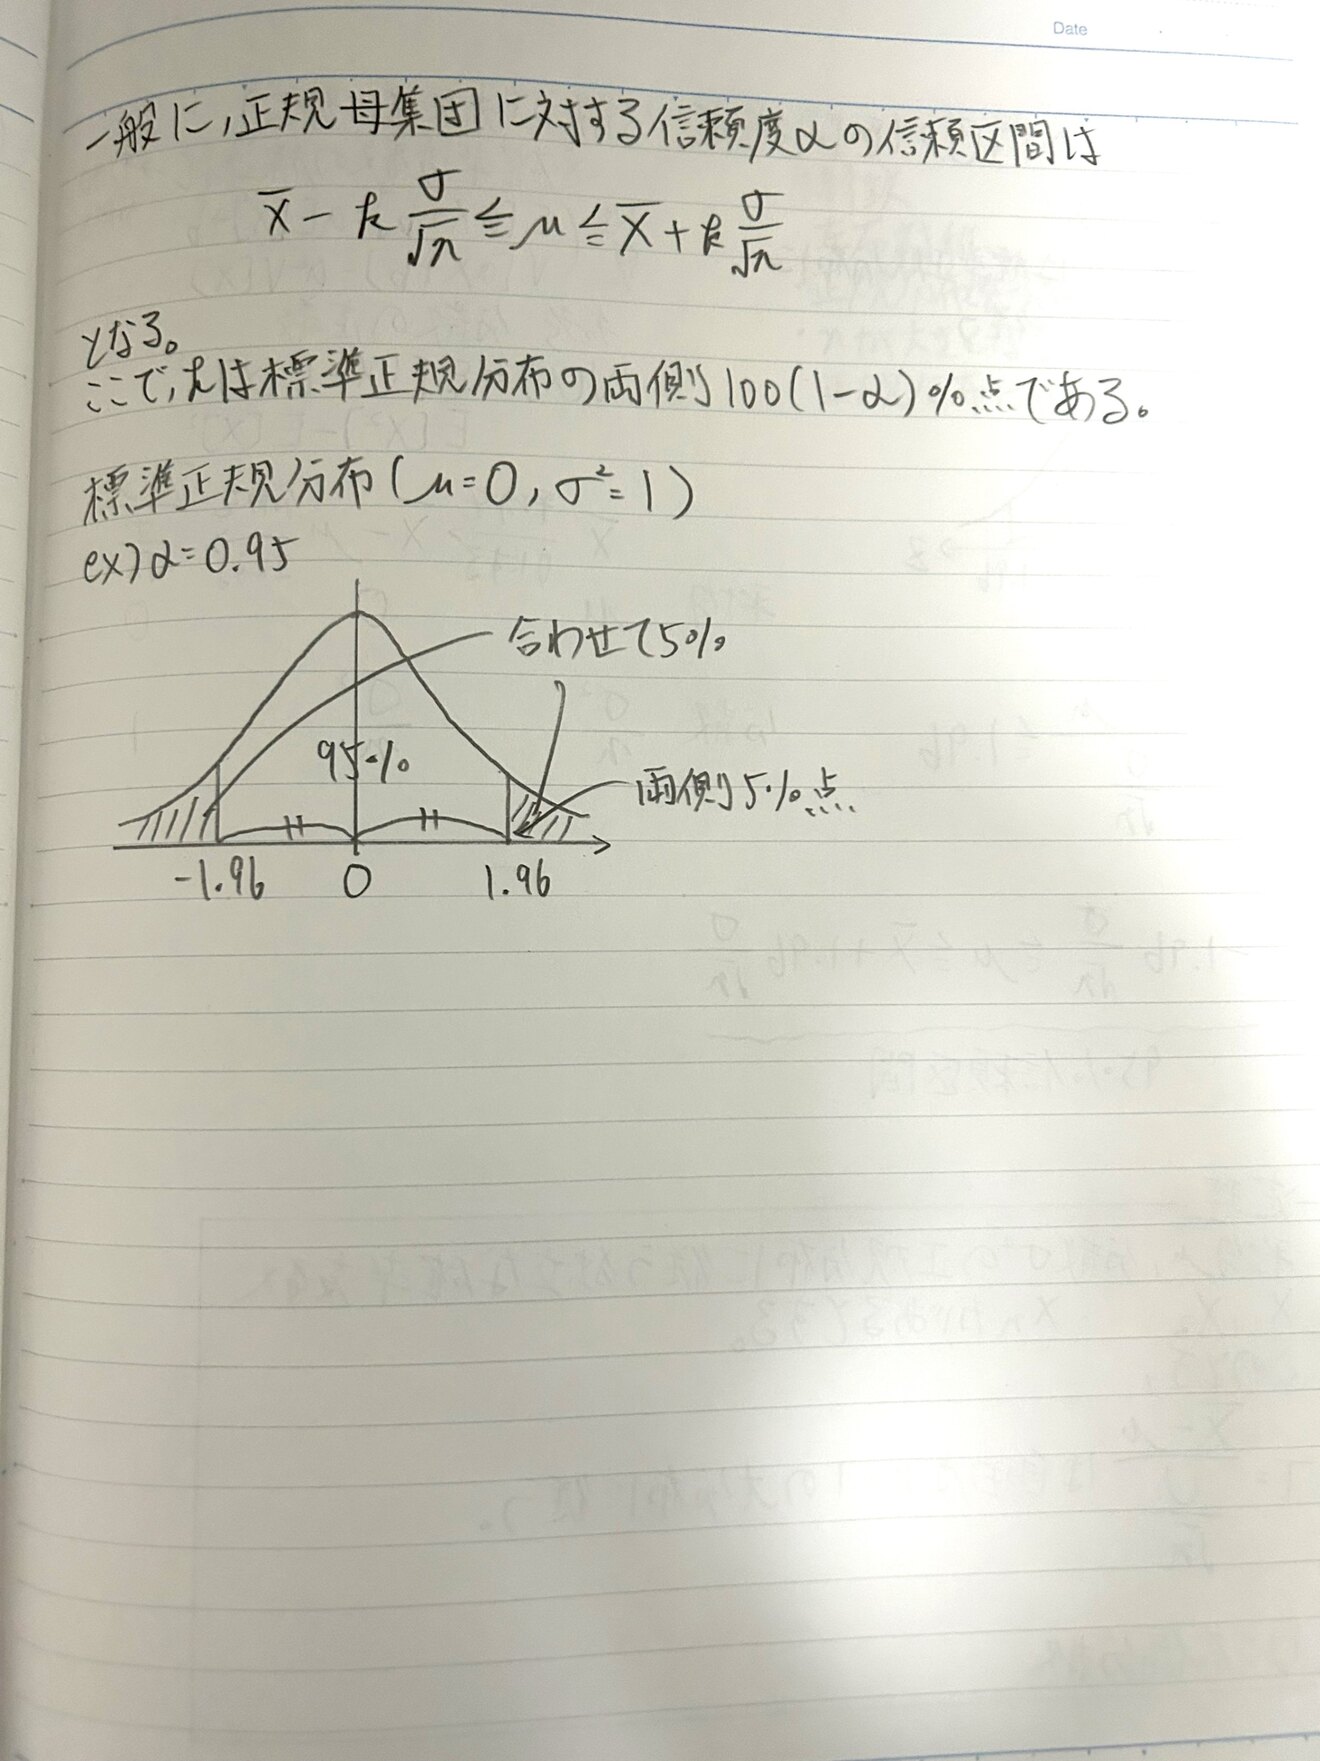 Date
一般に,正規母集団に対する信頼度αの信頼区間は
x̄ - k σ/√n ≦ μ ≦ x̄ + k σ/√n
となる。
ここで,kは標準正規分布の両側100(1-α)%点である。
標準正規分布(μ=0, σ²=1)
ex) α=0.95
合わせて5%
95%
両側5%点
-1.96 0 1.96